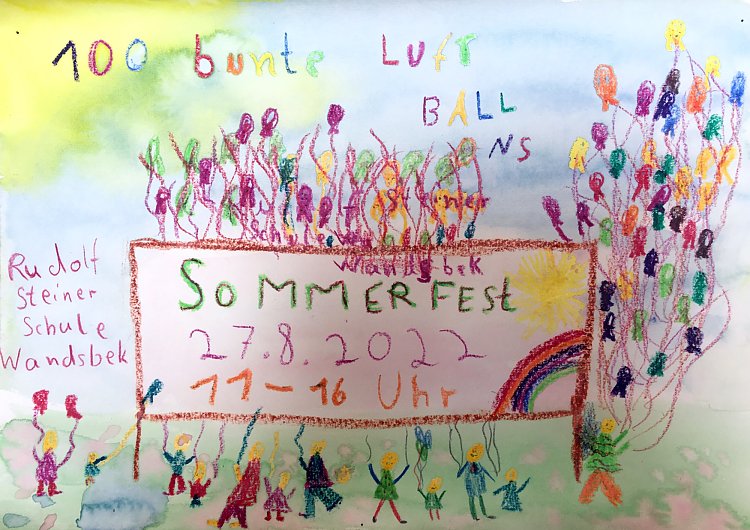 100 bunte Luft
BALL
NS
Rudolf Steiner
Schule
Wandsbek
SOMMERFEST
27.8.2022
11-16 Uhr
Rudolf
Steiner
Schule
Wandsbek